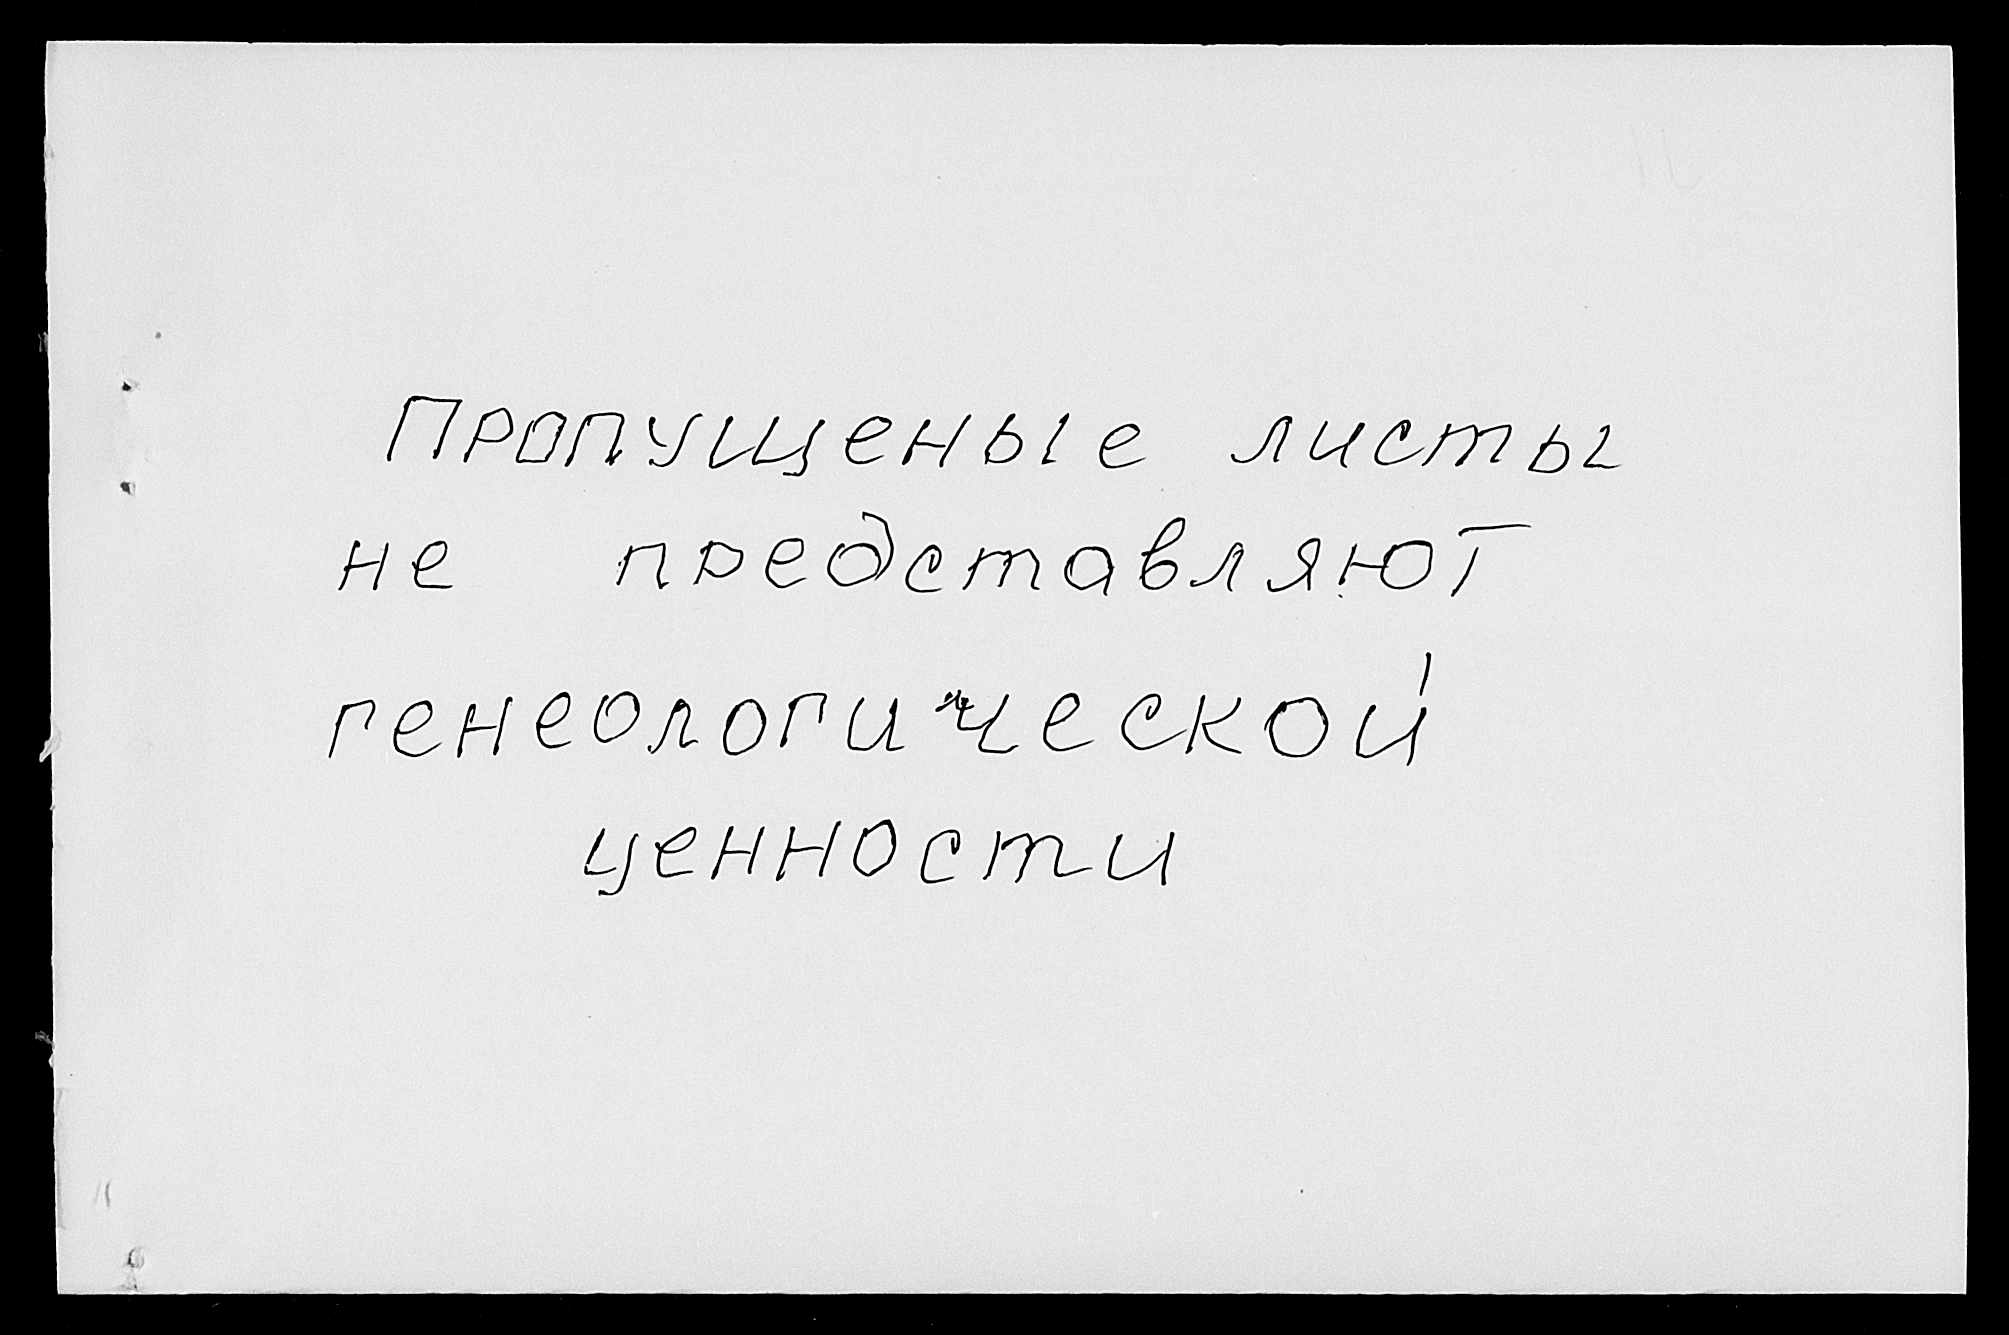 Пропущеные листы
не представляют
генеологической
ценности